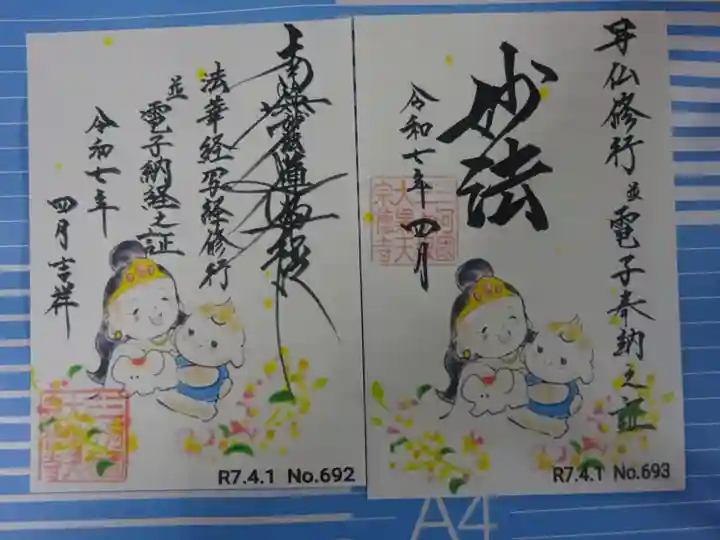 南無妙法蓮華経
法華経写経修行
並電子納経之証
令和七年
四月吉祥
R7.4.1 No.692
写仏修行並電子奉納之証
妙法
令和七年四月
R7.4.1 No.693
A4